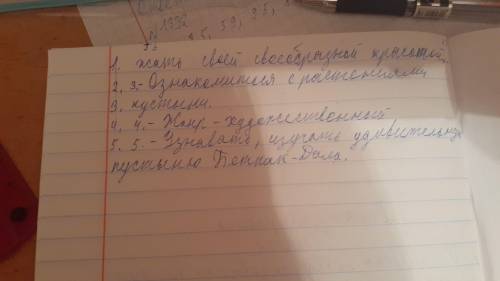 1995
1. жать своей своеобразной красотой.
2. 3.- Ознакомится с растениями
3. пустыни.
4. 4.- Жанр - художественный
5. 5.- Узнавать, изучать удивительную
пустыню Бетпак-Дала.